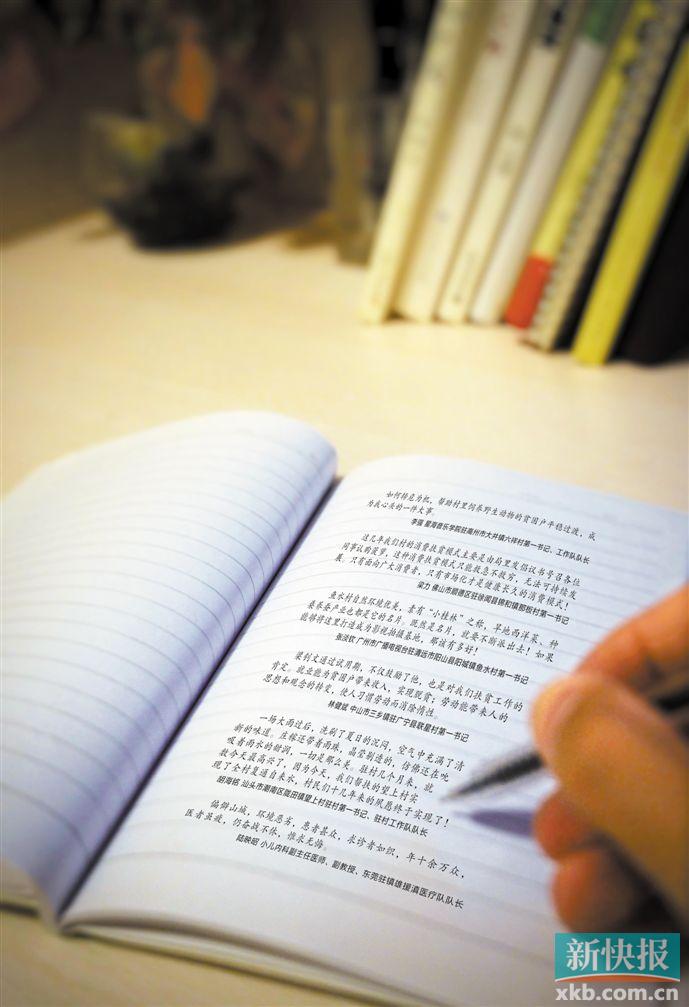 如何转危为机，帮助村里饲养野生动物的贫困户平稳过渡，成
为我心头的一件大事。
李强 星海音乐学院驻高州市大井镇六祥村第一书记、工作队队长
这几年我们村的消费扶贫模式主要是由局里发倡议书号召各位
同事认购菠萝，这种消费扶贫模式只能救急不救穷，无法可持续发
展。只有面向广大消费者，只有市场化才是健康长久的消费模式！
梁力 佛山市顺德区驻徐闻县锦和镇那板村第一书记
鱼水村自然环境优美，素有“小桂林”之称，旱地西洋菜、种
桑养蚕产业也都是它的名片。既然是名片，就要不断派出去！如果
能够将这里打造成为影视拍摄基地，那该有多好！
张淡钦 广州市广播电视台驻清远市阳山县阳城镇鱼水村第一书记
梁钊文通过试用期，不仅鼓励了他，也是对我们扶贫工作的
肯定。就业能为贫困户带来收入，实现脱贫；劳动能带来人的
思想和观念的转变，使人习惯劳动而消除惰性。
林健斌 中山市三乡镇驻广宁县联星村第一书记
一场大雨过后，洗刷了夏日的沉闷，空气中充满了清
新的味道。庄稼还带着雨珠，晶莹剔透的，仿佛还在吮
吸着雨水的甜润，一切是那么美。驻村几个月来，就
数今天最高兴了，因为今天，我们帮扶的望上村实
现了全村复通自来水，村民们十几年来的夙愿终于实现了！
胡海铭 汕头市潮南区陇田镇望上村驻村第一书记、驻村工作队队长
偏僻山城，环境恶劣，患者甚众，求诊者如织，年十余万众，
医者虽疲，仍奋战不休，惟求无悔。
陆映昭 小儿内科副主任医师、副教授、东莞驻镇雄援滇医疗队队长
新快报
xkb.com.cn